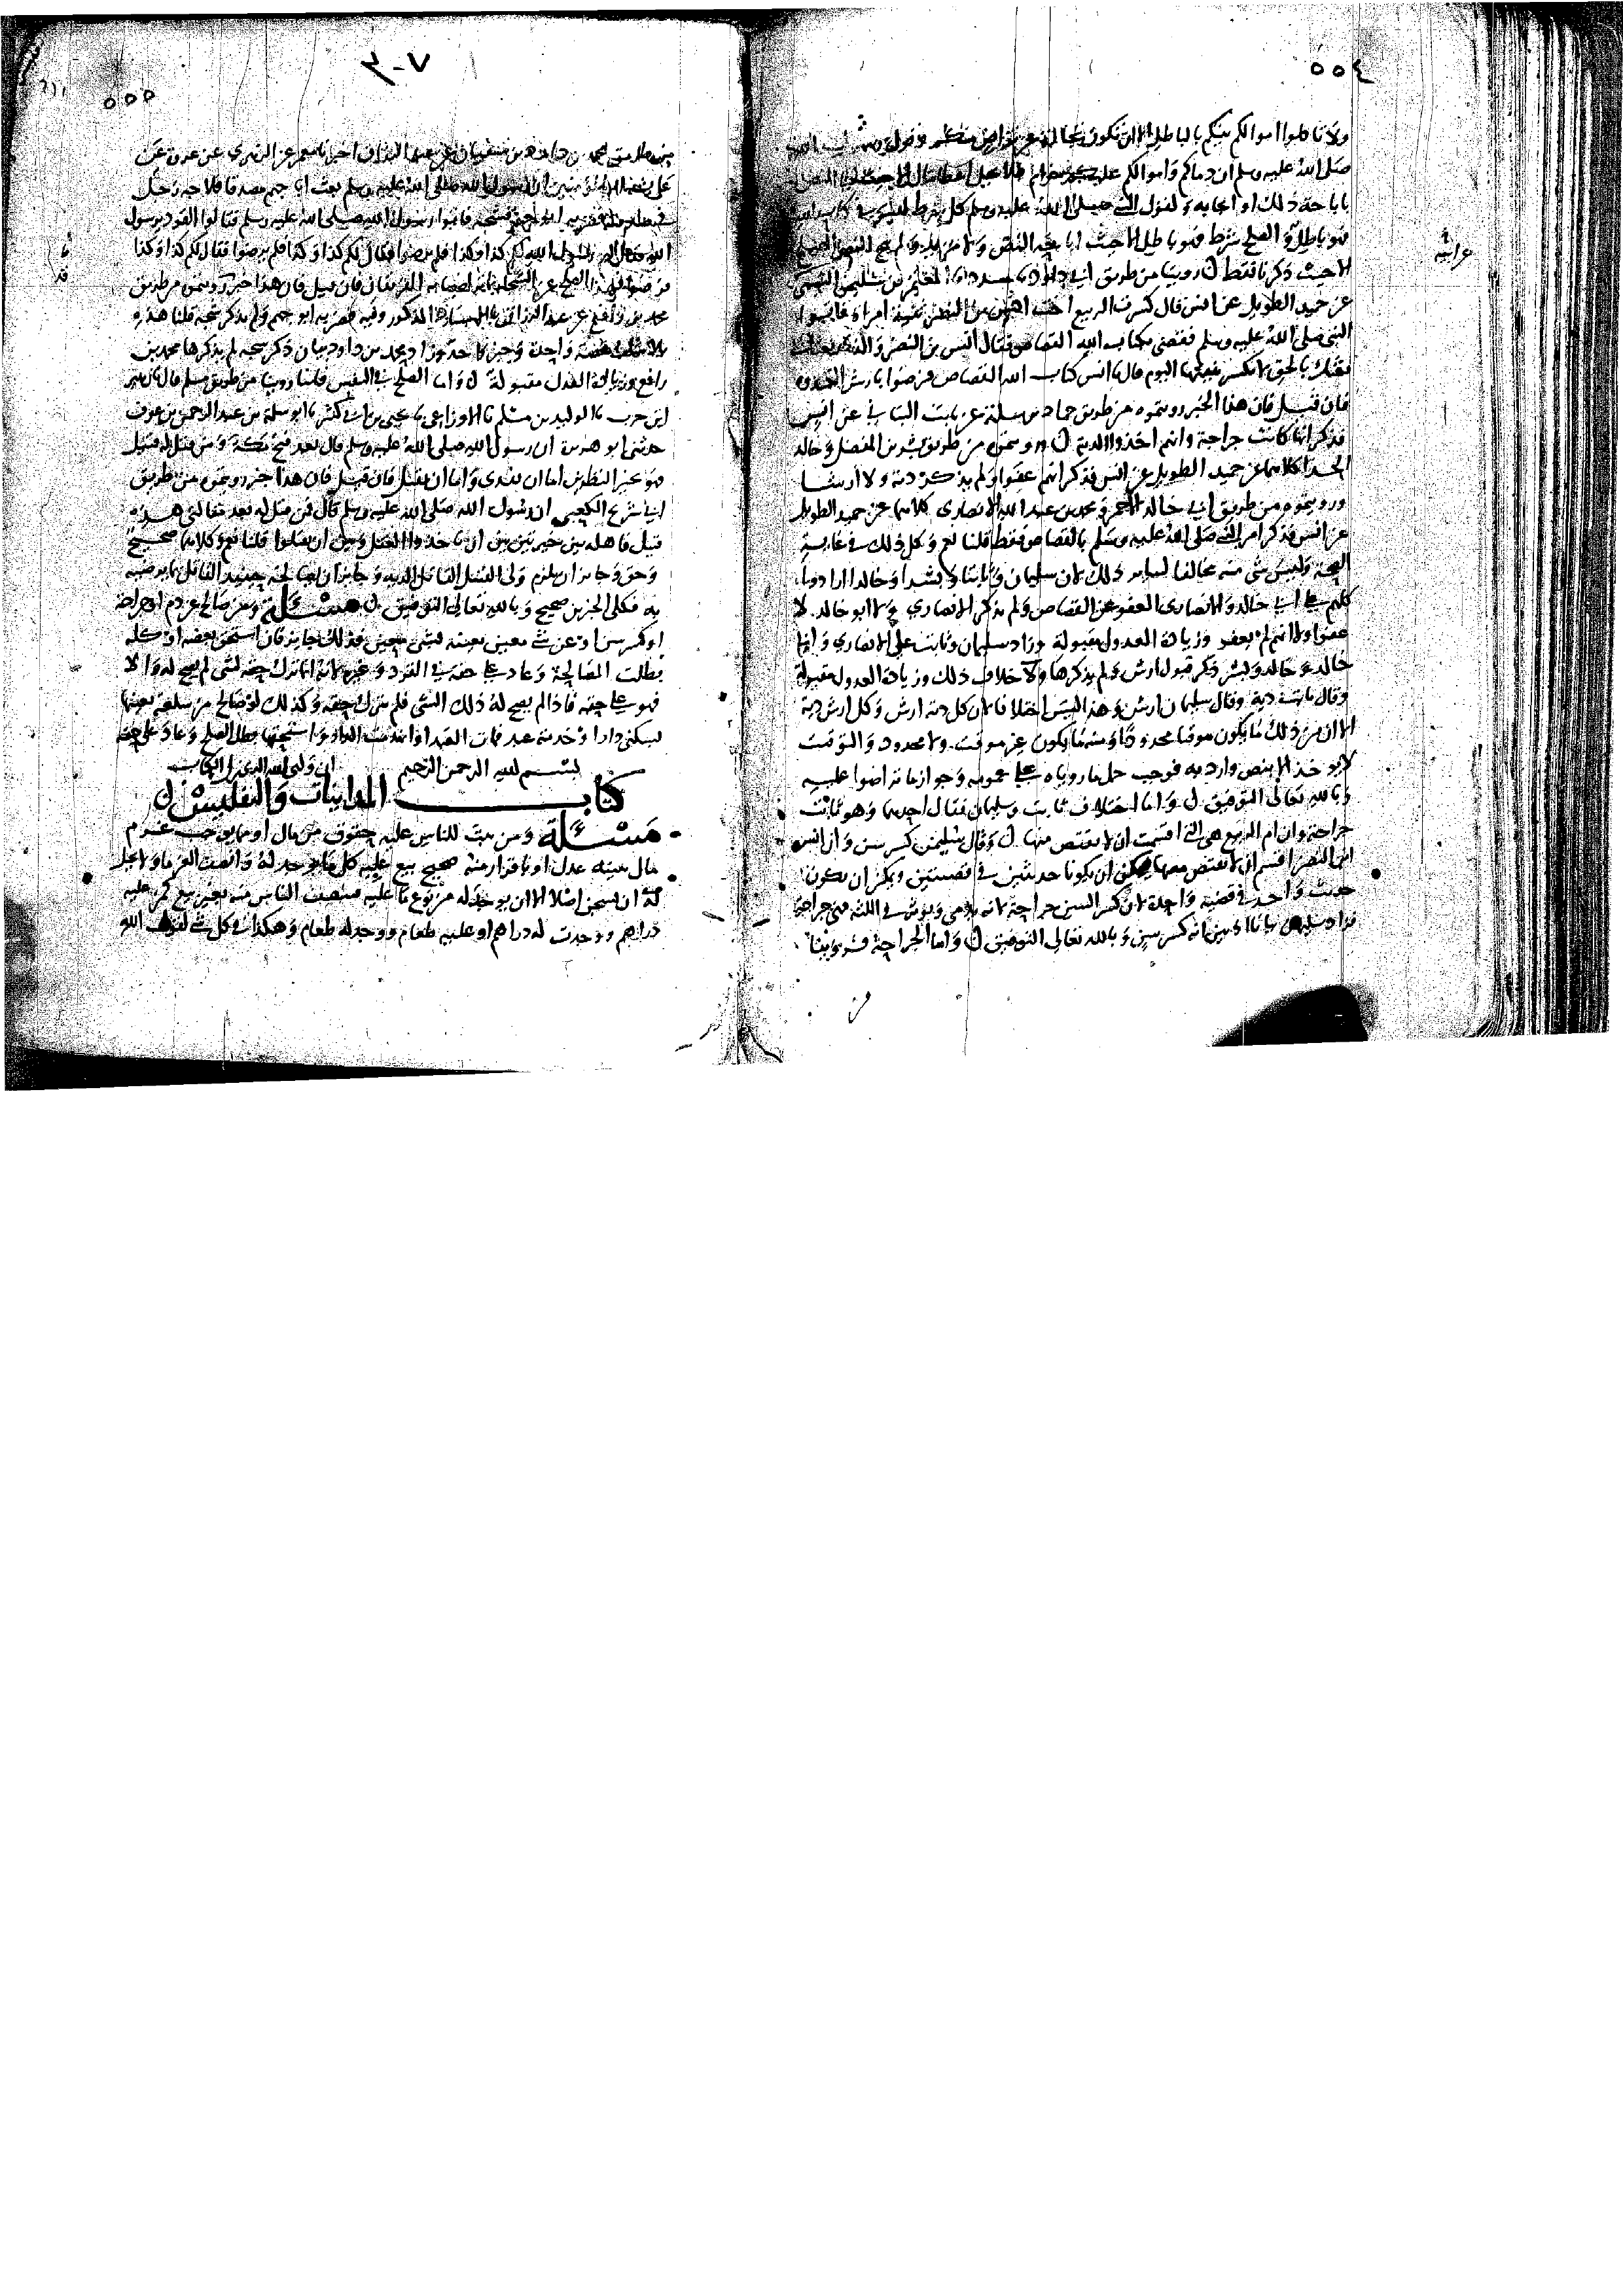 ٥٥٤
ولا تاكلوا اموالكم بينكم بالباطل الا ان تكون تجارة عن تراض منكم
صلى الله عليه وسلم ان دماكم واموالكم عليكم حرام فلا يحل
باباحة ذلك او ايجابه ولقول النبي صلى الله عليه وسلم كل شرط ليس في كتاب الله
فهو باطل والصلح شرط فهو باطل الا حيث اباحه النص ولا مزيد ولم يبح النص
الا حيث ذكرنا فقط روينا من طريق ابي داود المعتمر بن سليمن التيمي
عن حميد الطويل عن انس قال كسرت الربيع اخت انس بن النضر ثنية امراة فاتوا
النبي صلى الله عليه وسلم فقضى بكتاب الله القصاص فقال انس بن النضر والذي بعثك
بالحق لا تكسر ثنيتها اليوم قال يا انس كتاب الله القصاص فرضوا بارش اخذوه
فان قيل فان هذا الخبر رويتموه من طريق حماد بن سلمة عن ثابت البناني عن انس
فذكر انها كانت جراحة وانهم اخذوا الدية ورويتموه من طريق بشر بن المفضل وخالد
الحذا كلاهما عن حميد الطويل عن انس فذكر انهم عفوا ولم يذكر دية ولا ارشا
ورويتموه من طريق ابي خالد الاحمر ومحمد بن عبد الله الانصاري كلاهما عن حميد الطويل
عن انس فذكر امر النبي صلى الله عليه وسلم بالقصاص فقط قلنا نعم وكل ذلك في غاية
الصحة وليس شي منه مخالفا لسايره ذلك لان سليمان وثابتا وبشرا وخالدا زادوا
كلهم على ابي خالد والانصاري العفو عن القصاص ولم يذكر الانصاري ولا ابو خالد لا
عفوا ولا انه لم يعفو وزيادة العدول مقبولة وزاد سليمان وثابت على الانصاري وابي
خالد وخالد وبشر ذكر قبول ارش ولم يذكرها ولا خلاف ذلك وزيادة العدول مقبولة
وقال ثابت دية وقال سليمان ارش وهذا ليس اختلافا لان كل دية ارش وكل ارش دية
الا ان من ذلك ما يكون موقتا محدودا ومنه ما يكون غير موقت ولا محدود والتوقيت
لا يوخذ الا بنص وارد به فوجب حمل ما روياه على عمومه وجواز ما تراضوا عليه
وبالله تعالى التوفيق واما اختلاف ثابت وسليمان فقال احدهما وهو ثابت
جراحة وان ام الربيع هي التي اقسمت ان لا يقتص منها وقال سليمن كسر سن وان انس
ابن النضر اقسم ان لا يقتص منها فممكن ان يكونا حديثين في قصتين ويمكن ان يكون
حديث واحد في قضية واحدة لان كسر السن جراحة لانه يدمي ويوثر في اللثة فهي جراحة
فزاد سليمن بيانا اذ بين انه كسر سن وبالله تعالى التوفيق واما الجراحة فروينا
٥٥٥
٣٠٧
من طريق محمد بن داود بن سفيان عن عبد الرزاق اخبرنا معمر عن الزهري عن عروة عن
عايشة ام المؤمنين ان رسول الله صلى الله عليه وسلم بعث ابا جهم مصدقا فلاجه رجل
في صدقته فضربه ابو جهم فشجه فاتوا رسول الله صلى الله عليه وسلم فقالوا القود يرسول
الله فقال لهم رسول الله لكم كذا وكذا فلم يرضوا فقال لكم كذا وكذا فلم يرضوا فقال لكم كذا وكذا
محمد بن رافع عن عبد الرزاق المذكور وفيه فضربه ابو جهم ولم يذكر شجه قلنا هذه
بلا شك قصة واحدة وخبر واحد وزاد محمد بن داود بيان ذكر شجه لم يذكرها محمد بن
رافع وزيادة العدل مقبولة واما الصلح في النفس فلما روينا من طريق مسلم قال نا زهير
ابن حرب نا الوليد بن مسلم نا الاوزاعي نا يحيى بن ابي كثير نا ابو سلمة بن عبد الرحمن بن عوف
حدثني ابو هريرة ان رسول الله صلى الله عليه وسلم قال بعد فتح مكة ومن قتل له قتيل
فهو بخير النظرين اما ان يفدى واما ان يقتل فان قيل فان هذا خبر رويتموه من طريق
ابي شريح الكعبي ان رسول الله صلى الله عليه وسلم قال فمن قتل له بعد مقالتي هذه
قتيل فاهله بين خيرتين بين ان ياخذوا العقل وبين ان يقتلوا قلنا نعم وكلاهما صحيح
وحق وجايز ان يلزم ولي القتيل القاتل الدية وجايز ان يصالحه حينئذ القاتل بما يرضيه
به فكلى الخبرين صحيح وبالله تعالى التوفيق مسئلة ومن صالح عن دم او جراحة
او كسر سن او عن شي معين بعينه لشي معين فذلك جايز فان استحق بعضه او كله
بطلت المصالحة وعاد على حقه في القود وغيره لانه انما ترك حقه لشي لم يصح له والا
فهو على حقه فاذا لم يصح له ذلك الشي فلم يترك حقه وكذلك لو صالح من سلعة بعينها
بسكنى دار او خدمة عبد فمات العبد او انهدمت الدار او استحقا بطل الصلح وعاد على حقه
بسم الله الرحمن الرحيم ان ولي الله الذي نزل الكتاب
كتاب المداينات والتفليس
مسئلة ومن ثبت للناس عليه حقوق من مال او مما يوجب غرم
مال ببينة عدل او باقرار منه صحيح بيع عليه كل ما يوجد له وانصف الغرما ولا يحل
له ان يسجن اصلا الا ان يوجد له من نوع ما عليه فينصف الناس منه بغير بيع كمن عليه
دراهم ووجدت له دراهم او عليه طعام ووجد له طعام وهكذا في كل شي لقول الله